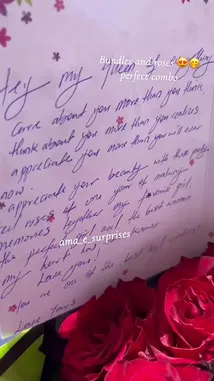 Bundles and roses 😍🥰
perfect combo
Hey my Queen
care about you more than you think
think about you more than you realize
appreciate you more than you will ever
now.
appreciate your beauty with these
red roses one year of making
memories together my favourite girl
the perfect girl and the best woman
my heart has
Love you!
ama_e_surprises
You are one of the best
Love Yours